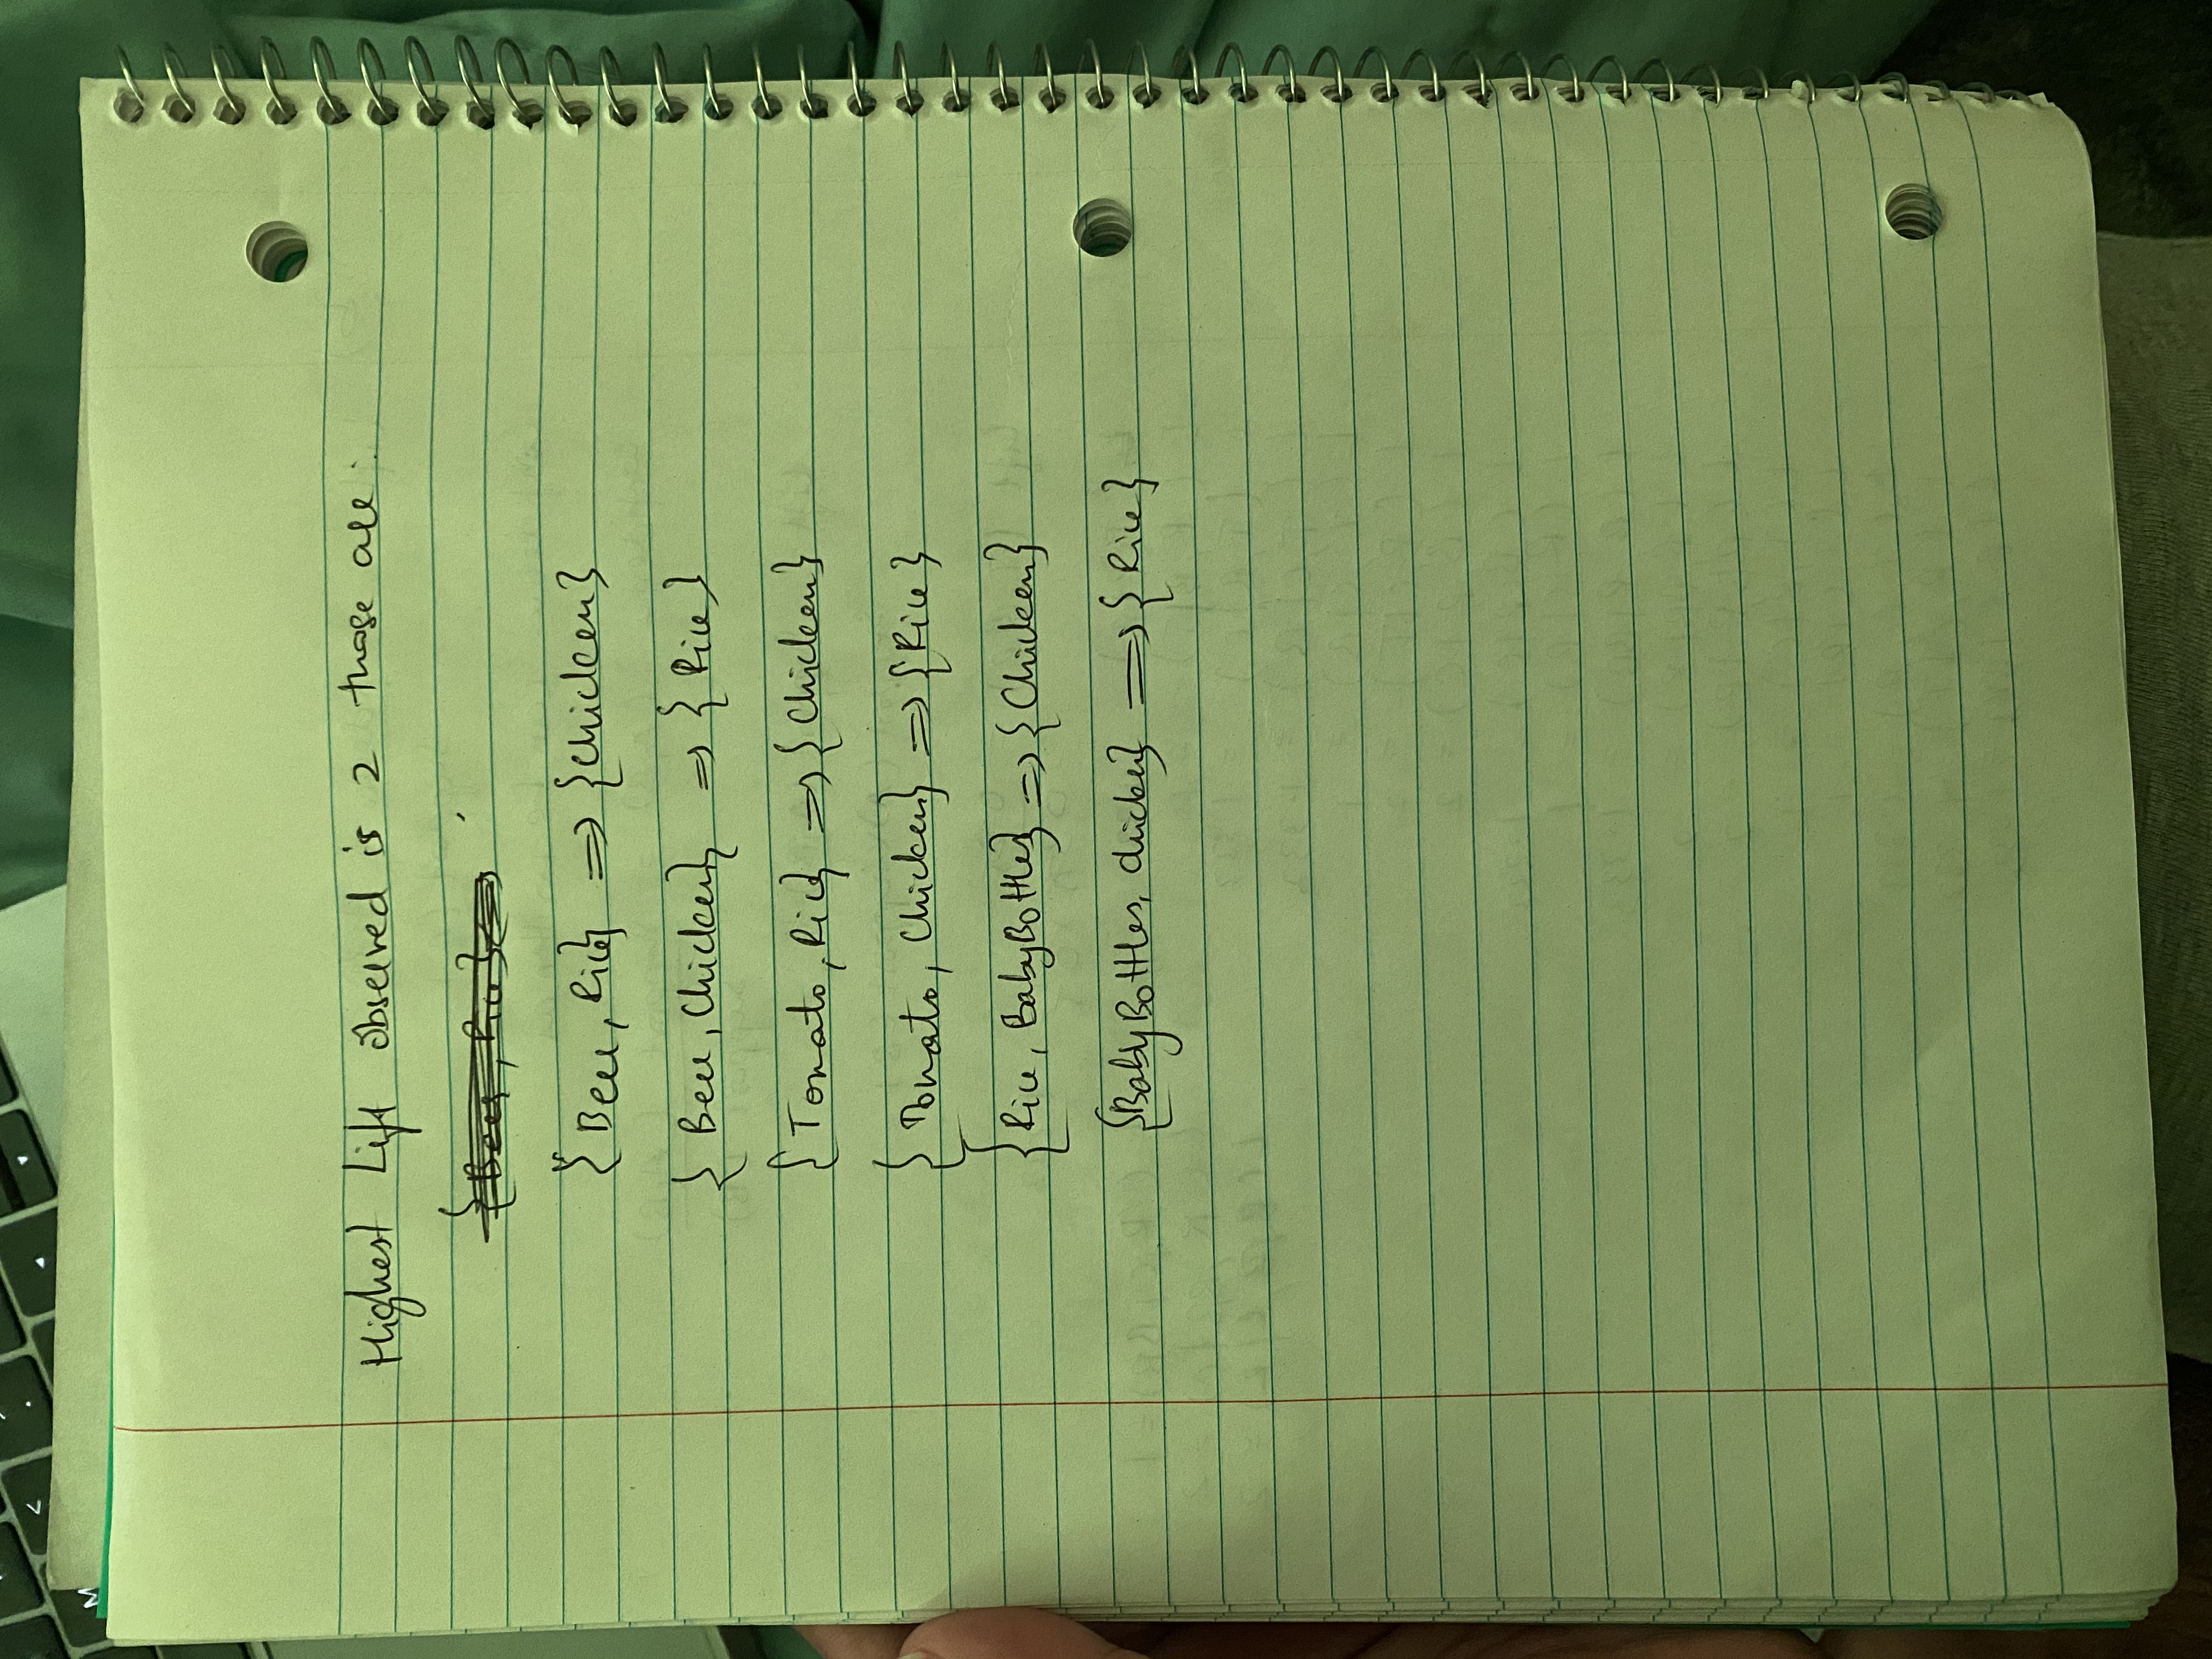 Highest Lift observed is 2 those are.
{Beer, Rice}
{Beer, Rice} => {Chicken}
{Beer, Chicken} => {Rice}
{Tomato, Rice} => {Chicken}
{Tomato, Chicken} => {Rice}
{Rice, BabyBottles} => {Chicken}
{BabyBottles, chicken} => {Rice}